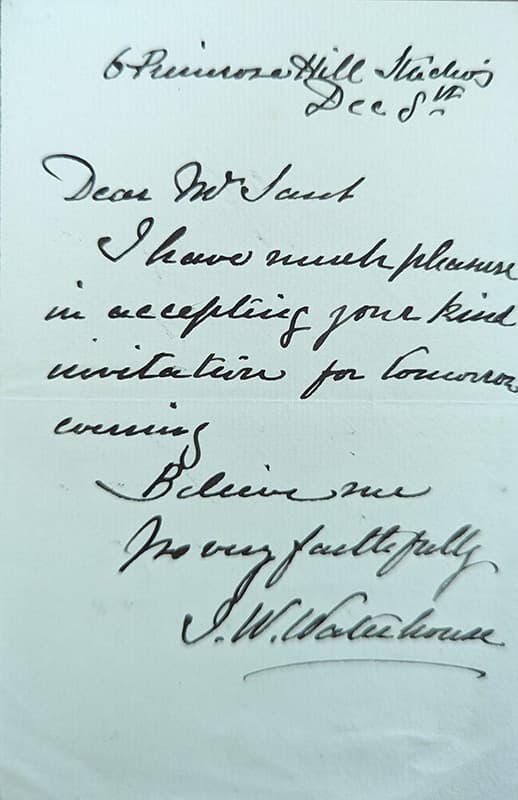 6 Primrose Hill Studios
Dec 8th
Dear Mr Sant
I have much pleasure
in accepting your kind
invitation for tomorrow
evening
Believe me
Yrs very faithfully
J. W. Waterhouse